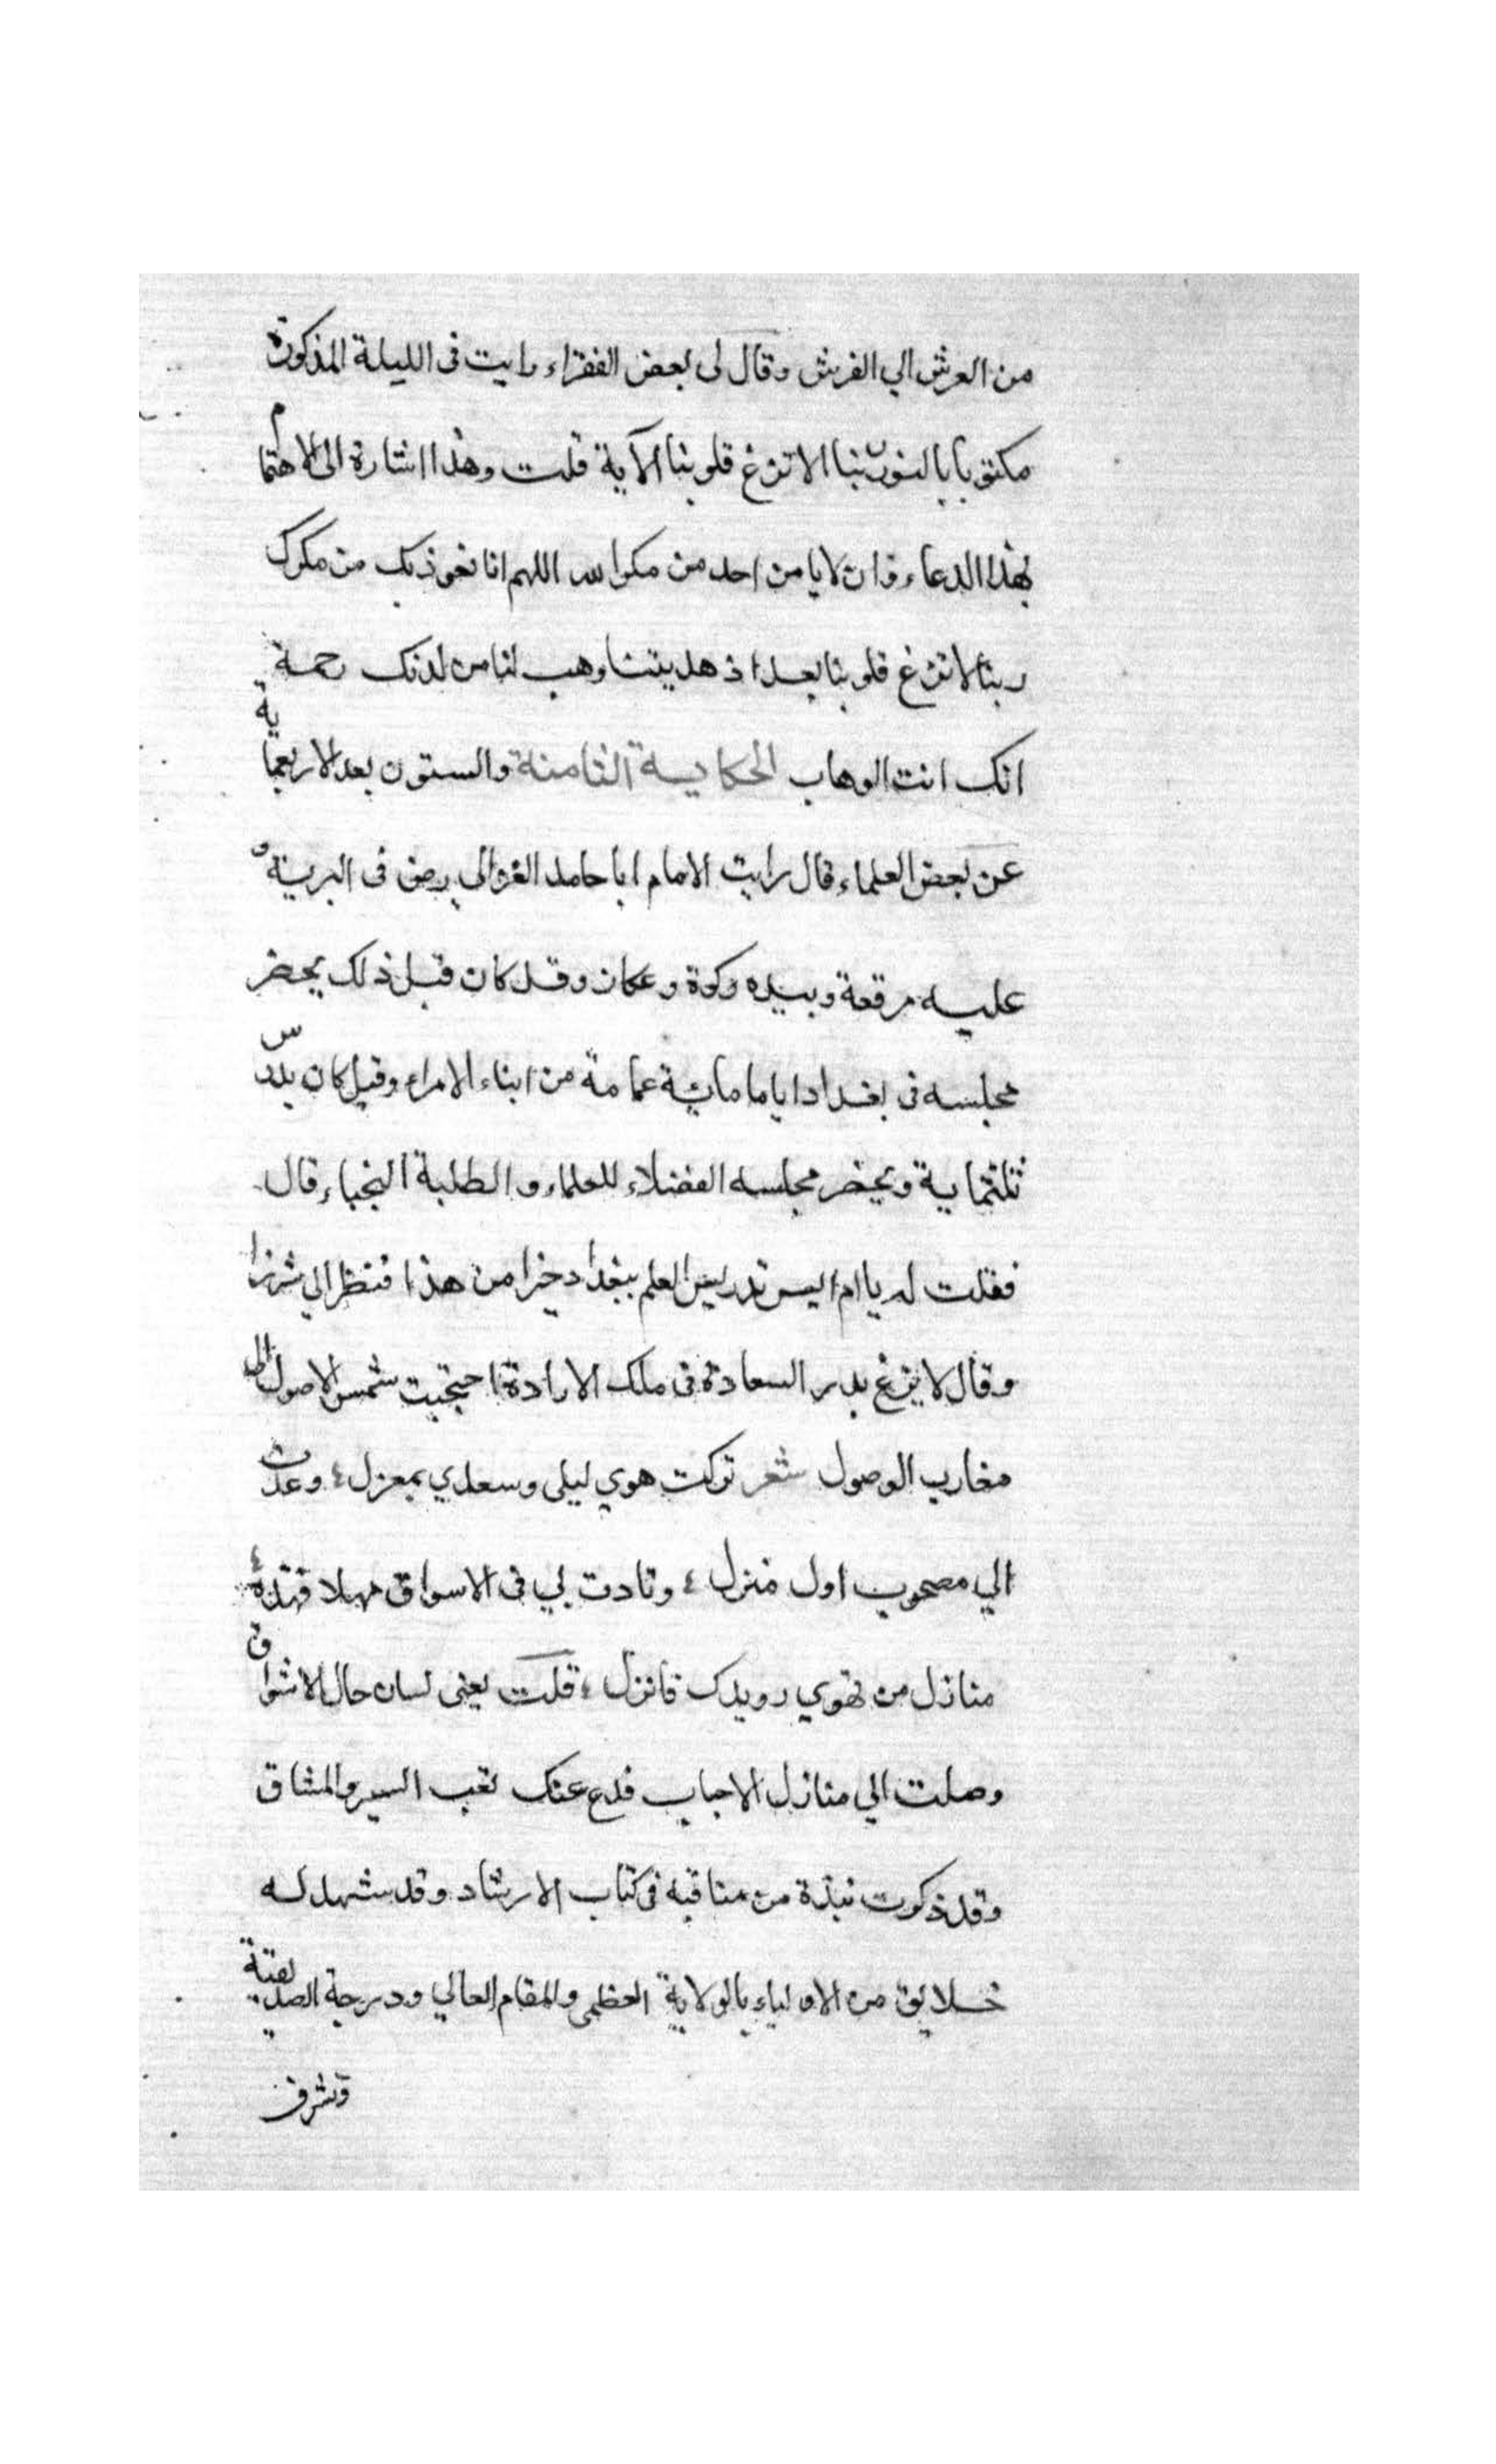 من العرش الي الفرش وقال لى بعض الفقراء رايت فى الليلة المذكورة
مكتوبا بالنور ربنا لا تزغ قلوبنا الآية قلت وهذا اشارة الى الاهتمام
بهذا الدعاء وان لا يامن احد من مكر الله اللهم انا نعوذ بك من مكرك
ربنا لا تزغ قلوبنا بعد اذ هديتنا وهب لنا من لدنك رحمة
انك انت الوهاب الحكاية الثامنة والستون بعد الاربعماية
عن بعض العلماء قال رايت الامام ابا حامد الغزالي رضى فى البرية و
عليه مرقعة وبيده ركوة وعكاز وقد كان قبل ذلك يحضر
مجلسه فى بغداد اياما مائة عمامة من ابناء الامراء وقيل كان يدرس
ثلثماية ويحضر مجلسه الفضلاء للعلماء والطلبة النجباء قال
فقلت له يا ام اليس تدريس العلم ببغداد خيرا من هذا فنظر الي شزرا
وقال لا يزغ بدر السعادة فى ملك الارادة احتجبت شمس الاصول الى
مغارب الوصول شعر تركت هوي ليلى وسعدي بمعزل وعدت
الي مصحوب اول منزل ونادت بي فى الاسواق مهلا فهذه
منازل من تهوي رويدك فانزل قلت يعنى لسان حال الاشواق
وصلت الي منازل الاحباب فدع عنك تعب السير والمشاق
وقد ذكرت نبذة من مناقبه فى كتاب الارشاد وقد شهد له
خلايق من الاولياء بالولاية العظمى والمقام العالي ودرجة الصديقية
وتشرف